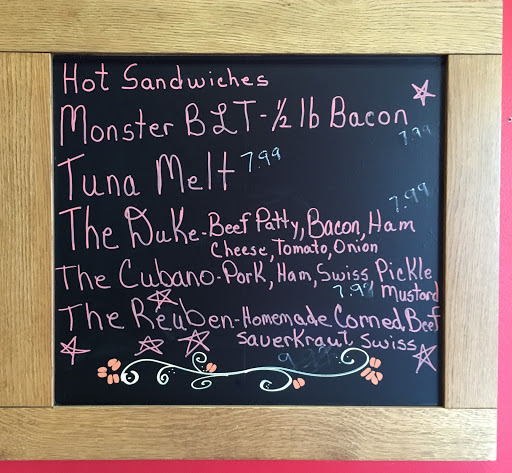 Hot Sandwiches
Monster BLT - 1/2 lb Bacon
7.99
Tuna Melt 7.99
7.99
The Duke - Beef Patty, Bacon, Ham
Cheese, Tomato, Onion
The Cubano - Pork, Ham, Swiss Pickle
7.99 Mustard
The Reuben - Homemade Corned Beef
Sauerkraut, Swiss